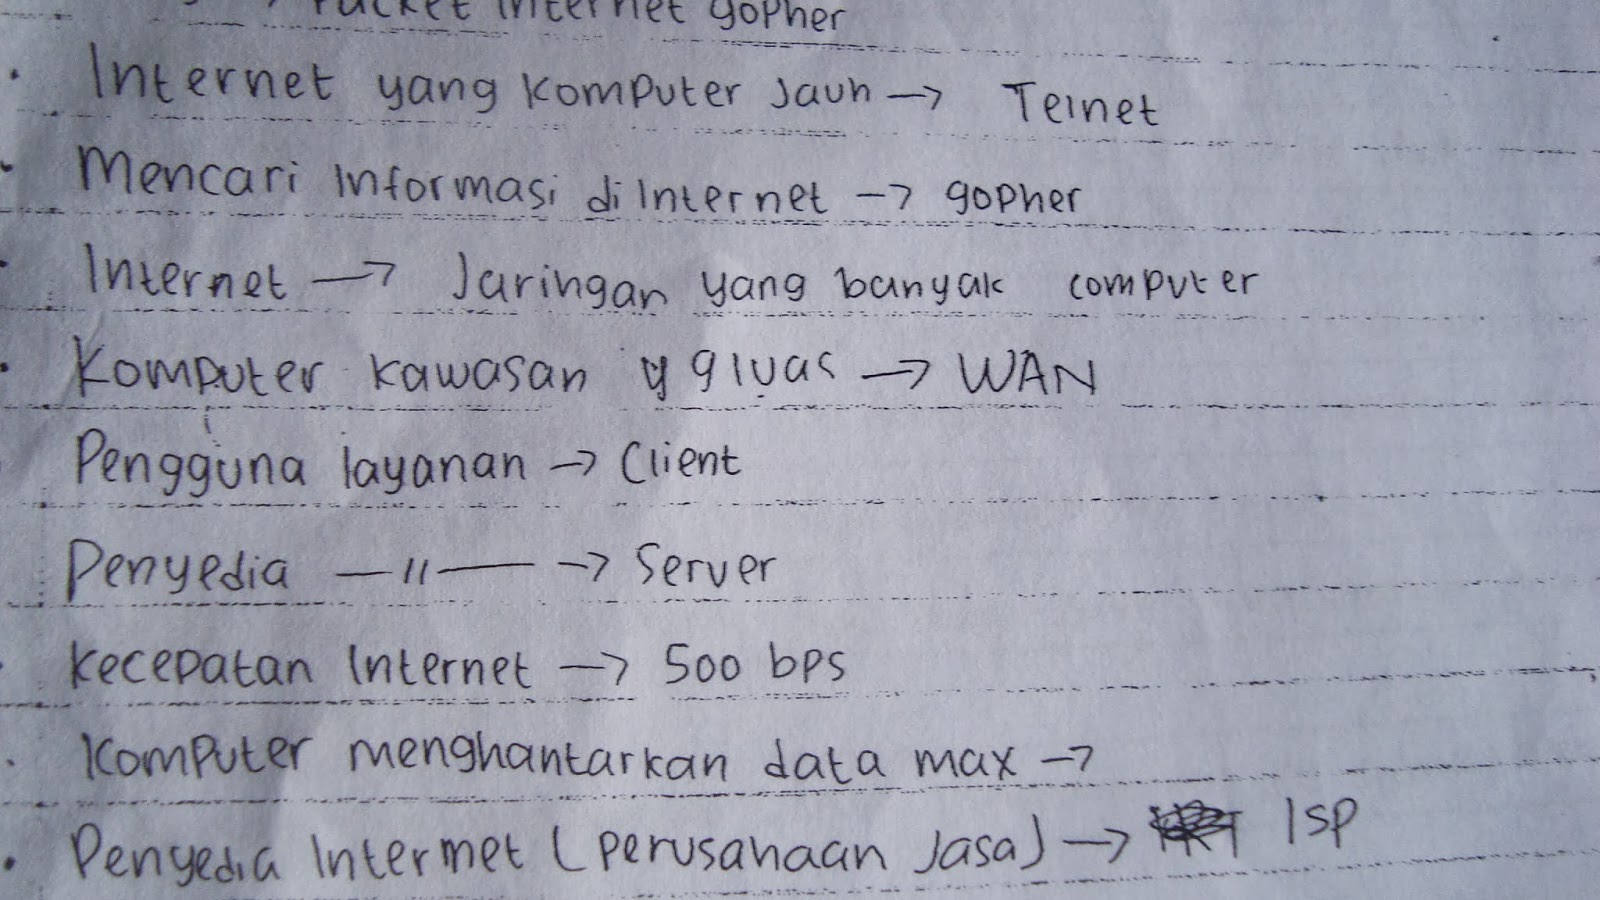 → Packet internet gopher
• Internet yang komputer jauh → Telnet
• Mencari informasi di internet → gopher
• Internet → Jaringan yang banyak computer
• Komputer kawasan yg luas → WAN
Pengguna layanan → Client
Penyedia —〃— → Server
• Kecepatan Internet → 500 bps
• Komputer menghantarkan data max →
• Penyedia Intermet (perusahaan Jasa) → ISP